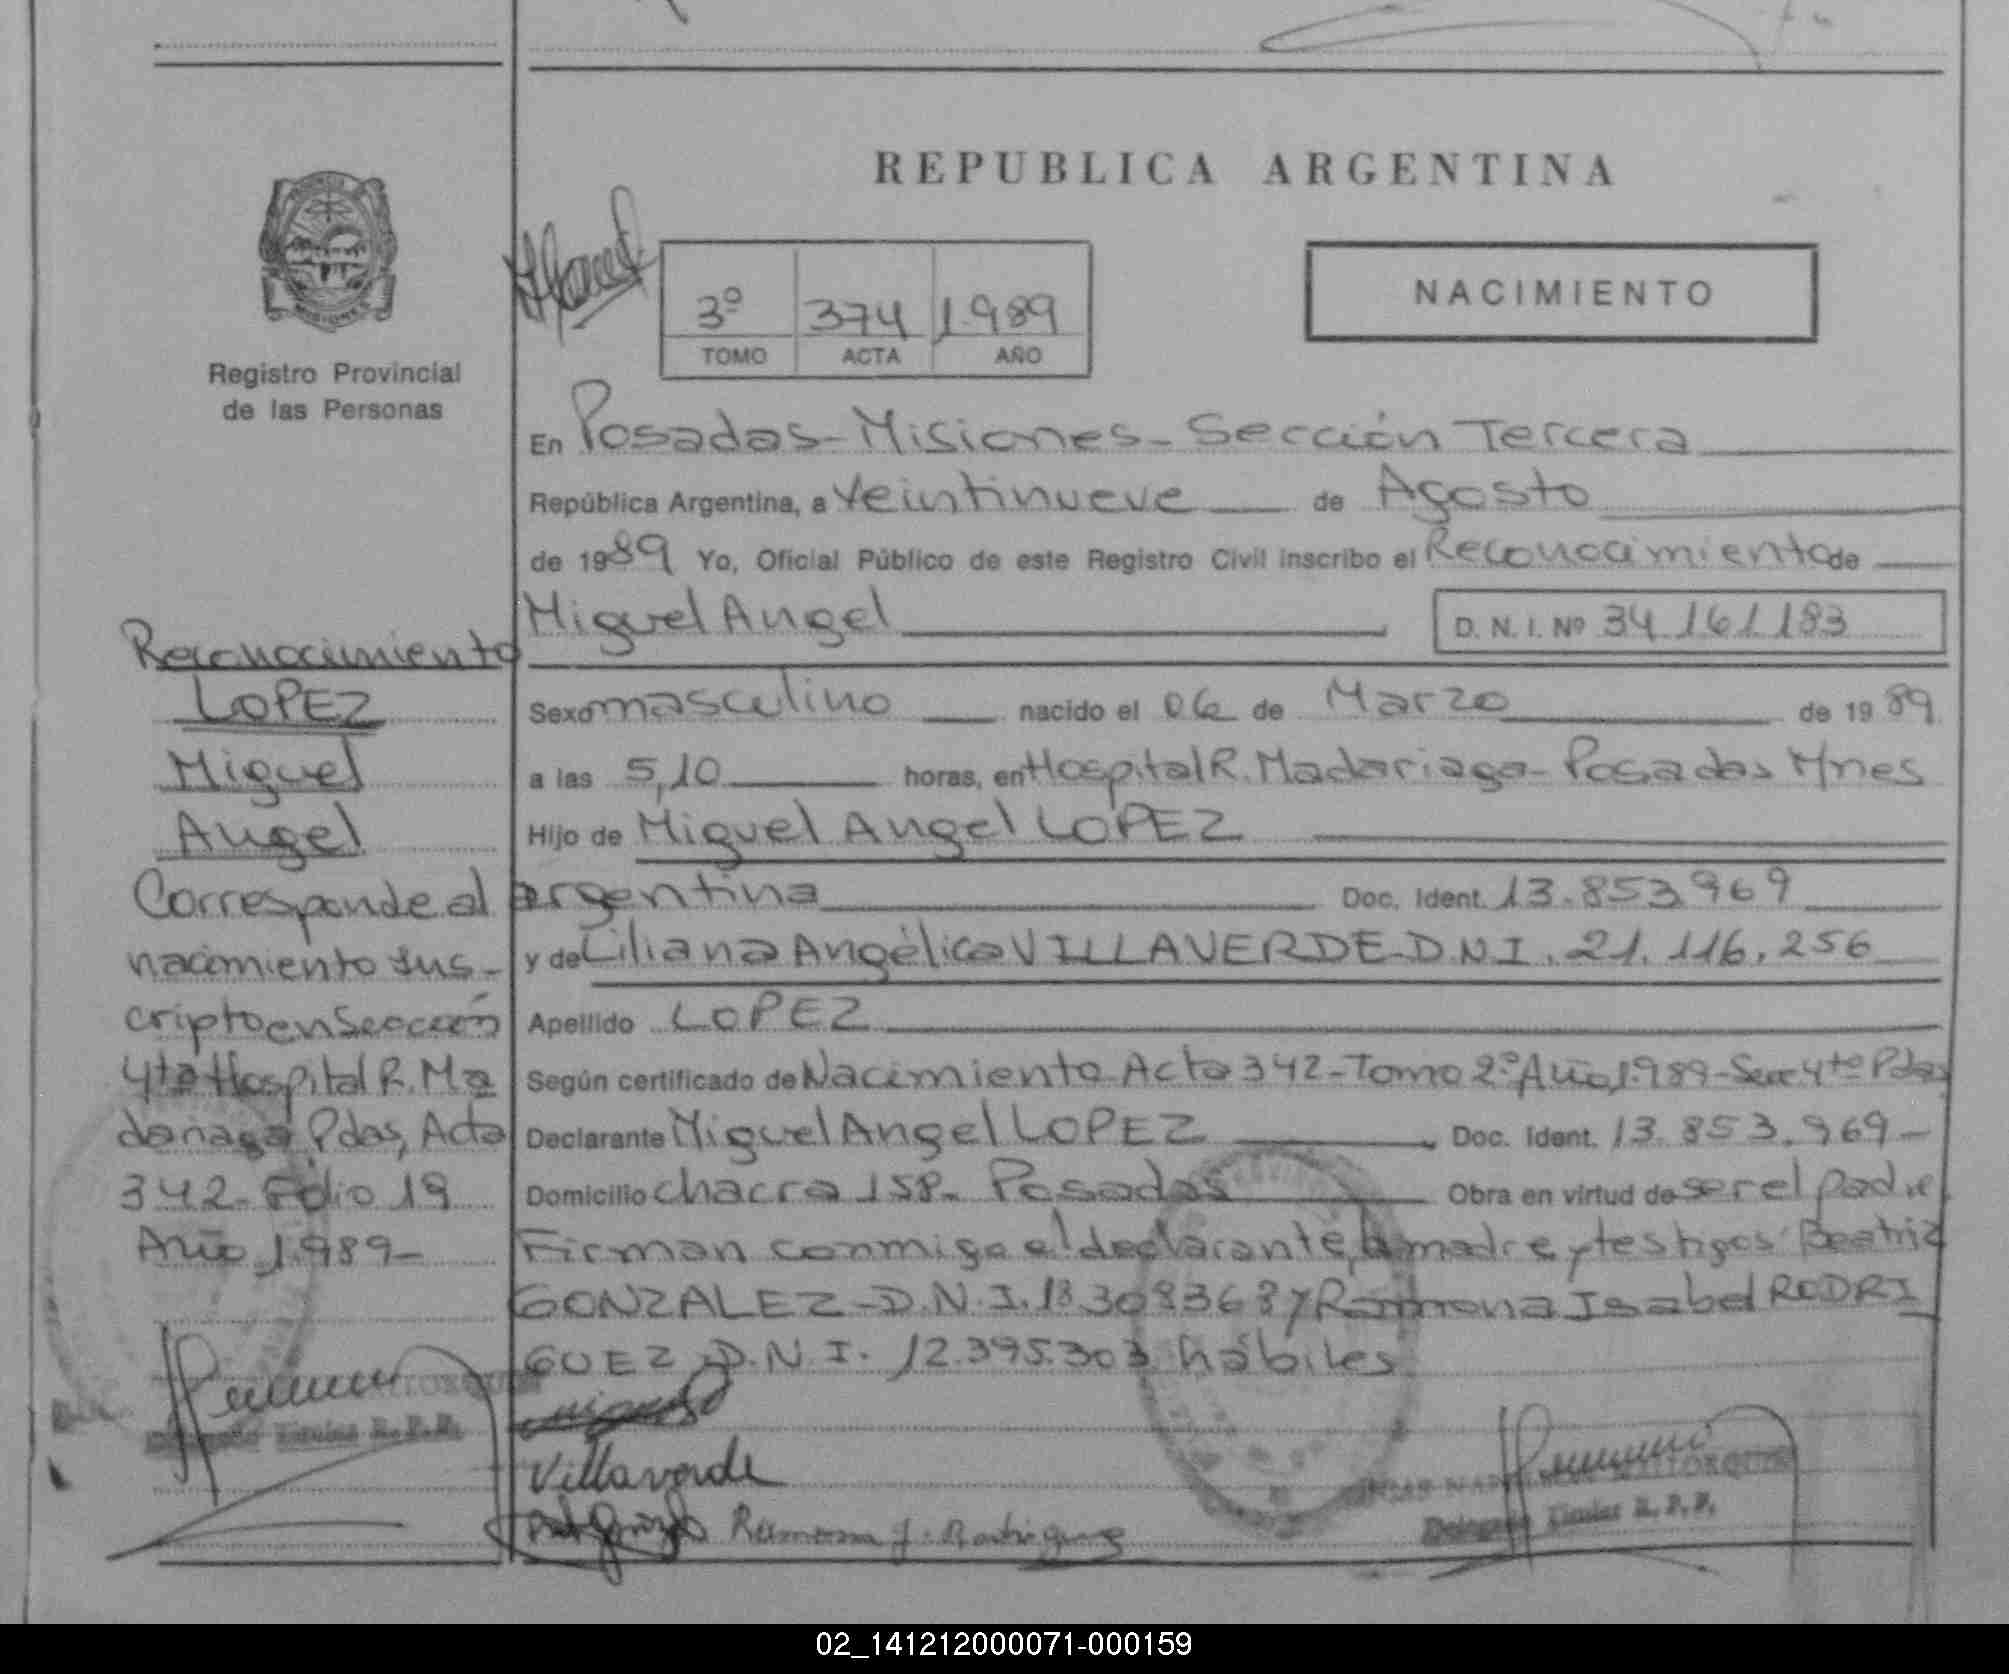 REPUBLICA ARGENTINA
3º 374 1.989
TOMO ACTA AÑO
NACIMIENTO
Registro Provincial
de las Personas
En Posadas-Misiones-Sección Tercera
República Argentina, a Veintinueve de Agosto
de 1989 Yo, Oficial Público de este Registro Civil inscribo el Reconocimiento de
Miguel Angel D. N. I. Nº 34.161.183
Sexo masculino nacido el 06 de Marzo de 1989
a las 5,10 horas, en Hospital R. Madariaga-Posadas Mnes
Hijo de Miguel Angel LOPEZ
argentina Doc. Ident. 13.853.969
y de Liliana Angélica VILLAVERDE-D.N.I. 21.116.256
Apellido LOPEZ
Según certificado de Nacimiento Acta 342-Tomo 2º Año 1.989-Secc 4ta Pdas
Declarante Miguel Angel LOPEZ Doc. Ident. 13.853.969-
Domicilio chacra 158- Posadas Obra en virtud de ser el padre
Firman conmigo el declarante, la madre y testigos Beatriz
GONZALEZ-D.N.I. y Ramona Isabel RODRI
GUEZ D.N.I. 12.395.303 hábiles
Villaverde
Ramona I. Rodriguez
Delegado Titular R.P.P.
Reconocimiento
LOPEZ
Miguel
Angel
Corresponde al
nacimiento ins-
cripto en Sección
4ta Hospital R. Ma
dariaga Pdas, Acta
342-Folio 19
Año 1.989-
Delegado Titular R.P.P.
02_141212000071-000159